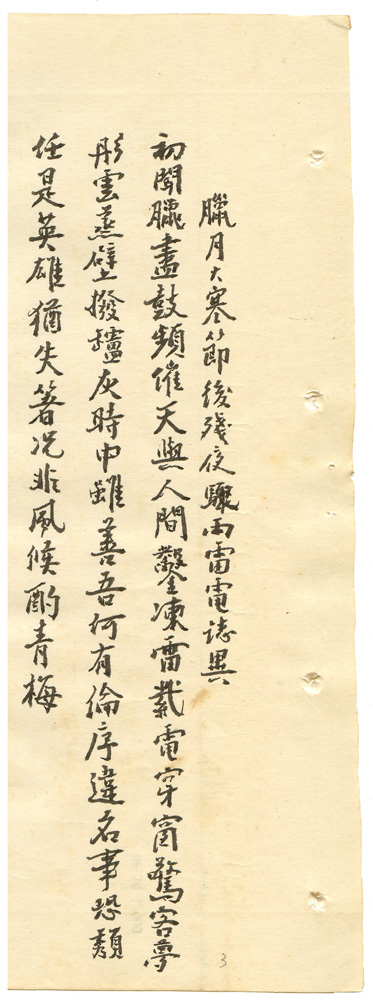 臘月大寒節後殘夜驟雨雷電誌異
初聞臘盡鼓頻催天與人間鑿凍雷載電穿窗驚客夢
彤雲蒸壁撥罏灰時中雖善吾何有倫序違名事恐頹
任是英雄猶失箸况非風候酌青梅
3